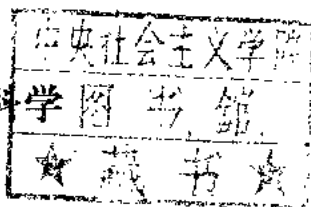 中央社会主义学院
学图书馆
★藏书★